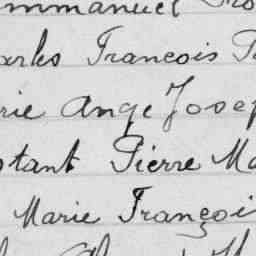 mmanuel
arles François
rie Ange Josep
stant Pierre Ma
Marie Françoi